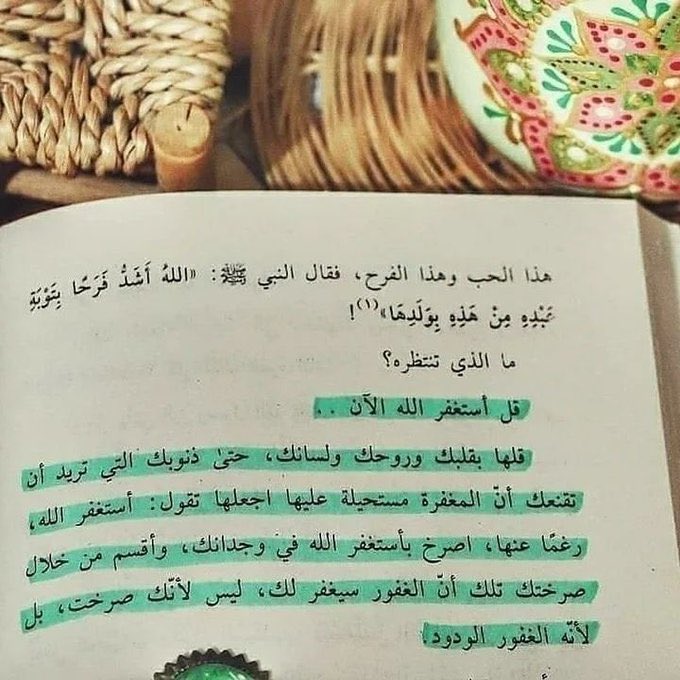 هذا الحب وهذا الفرح، فقال النبي ﷺ: «اللهُ أَشَدُّ فَرَحًا بِتَوْبَةِ
عَبْدِهِ مِنْ هَذِهِ بِوَلَدِهَا»(١)!
ما الذي تنتظره؟
قل أستغفر الله الآن ..
قلها بقلبك وروحك ولسانك، حتىٰ ذنوبك التي تريد أن
تقنعك أنّ المغفرة مستحيلة عليها اجعلها تقول: أستغفر الله،
رغمًا عنها، اصرخ بأستغفر الله في وجدانك، وأقسم من خلال
صرختك تلك أنّ الغفور سيغفر لك، ليس لأنّك صرخت، بل
لأنّه الغفور الودود.